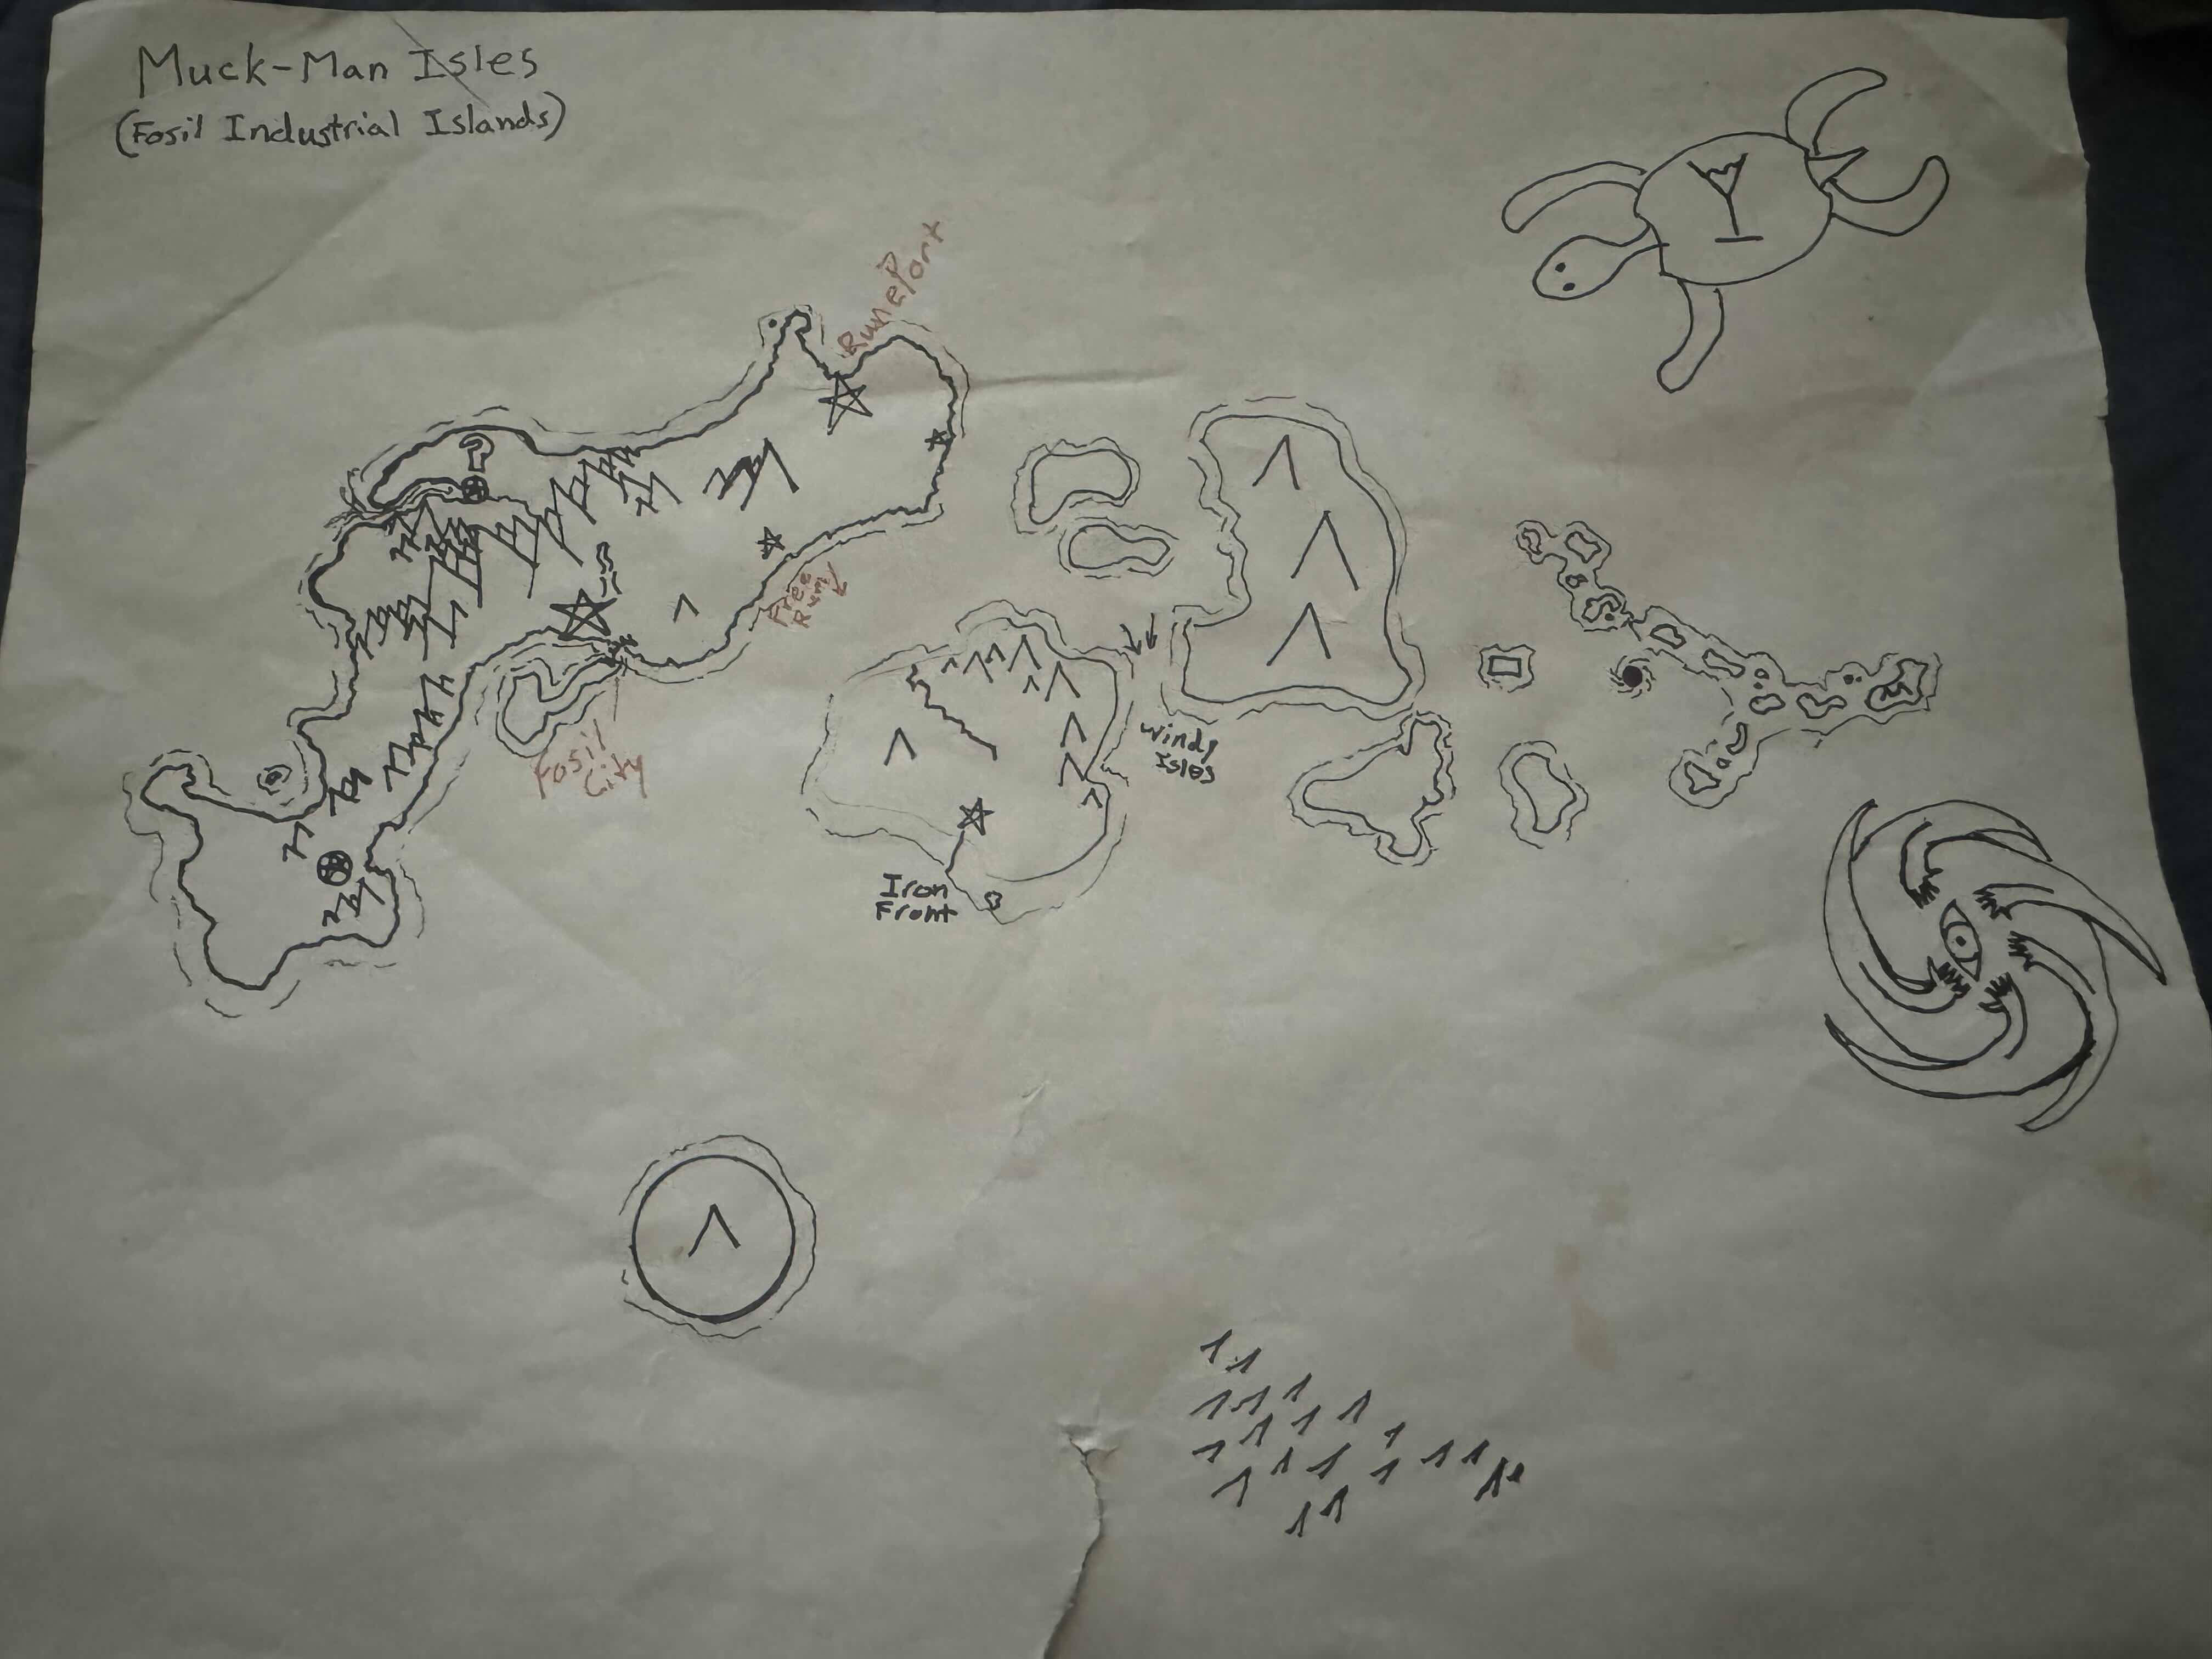 Muck-Man Isles
(Fosil Industrial Islands)
RunePort
Free
Rum
Fosil
City
Windy
Isles
Iron
Front